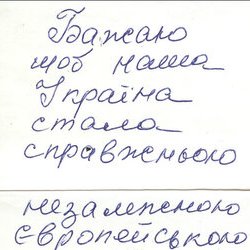 Бажаю
щоб наша
Україна
стала
справжньою
незалежною
європейською